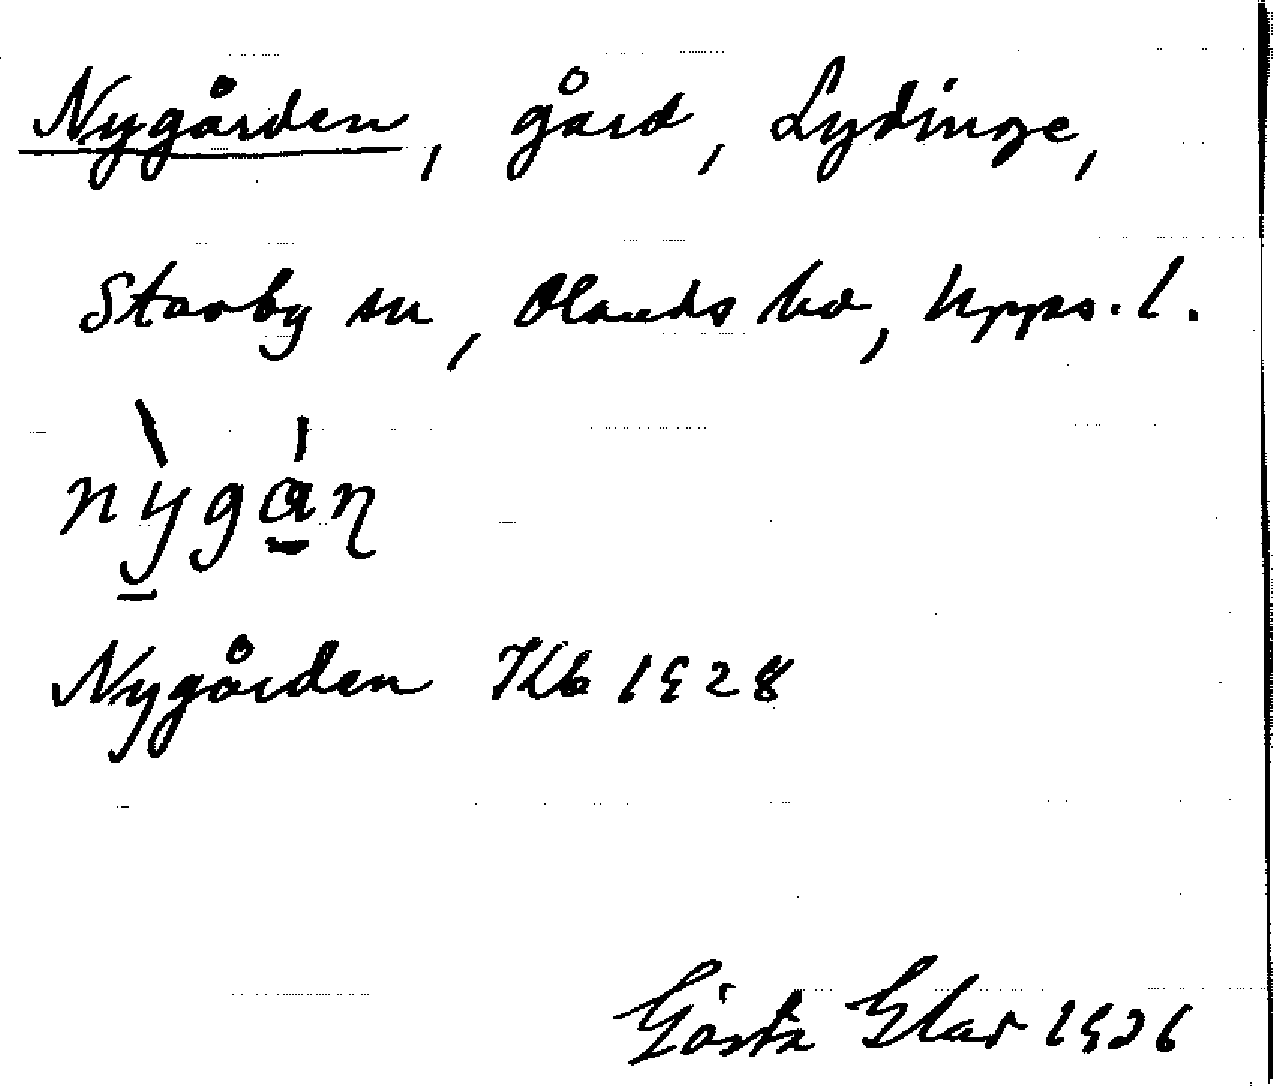 Nygården, gård, Lydinge,
Stavby sn, Olands hd, Upps. l.
nỳgán
Nygården Kb 1928
Gösta 1936